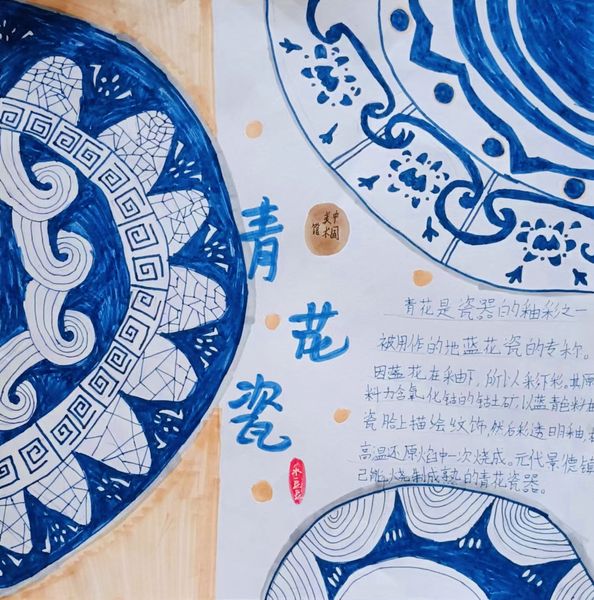 青花瓷
中国
美术
馆
青花是瓷器的釉彩之一
被用作的地蓝花瓷的专称。
因蓝花在釉下,所以彩,其原
料力含氧化钴的钴土矿,以蓝青色料
瓷胎上描绘纹饰,然后彩透明釉,
高温还原焰中一次烧成。元代景德镇
已能烧制成熟的青花瓷器。